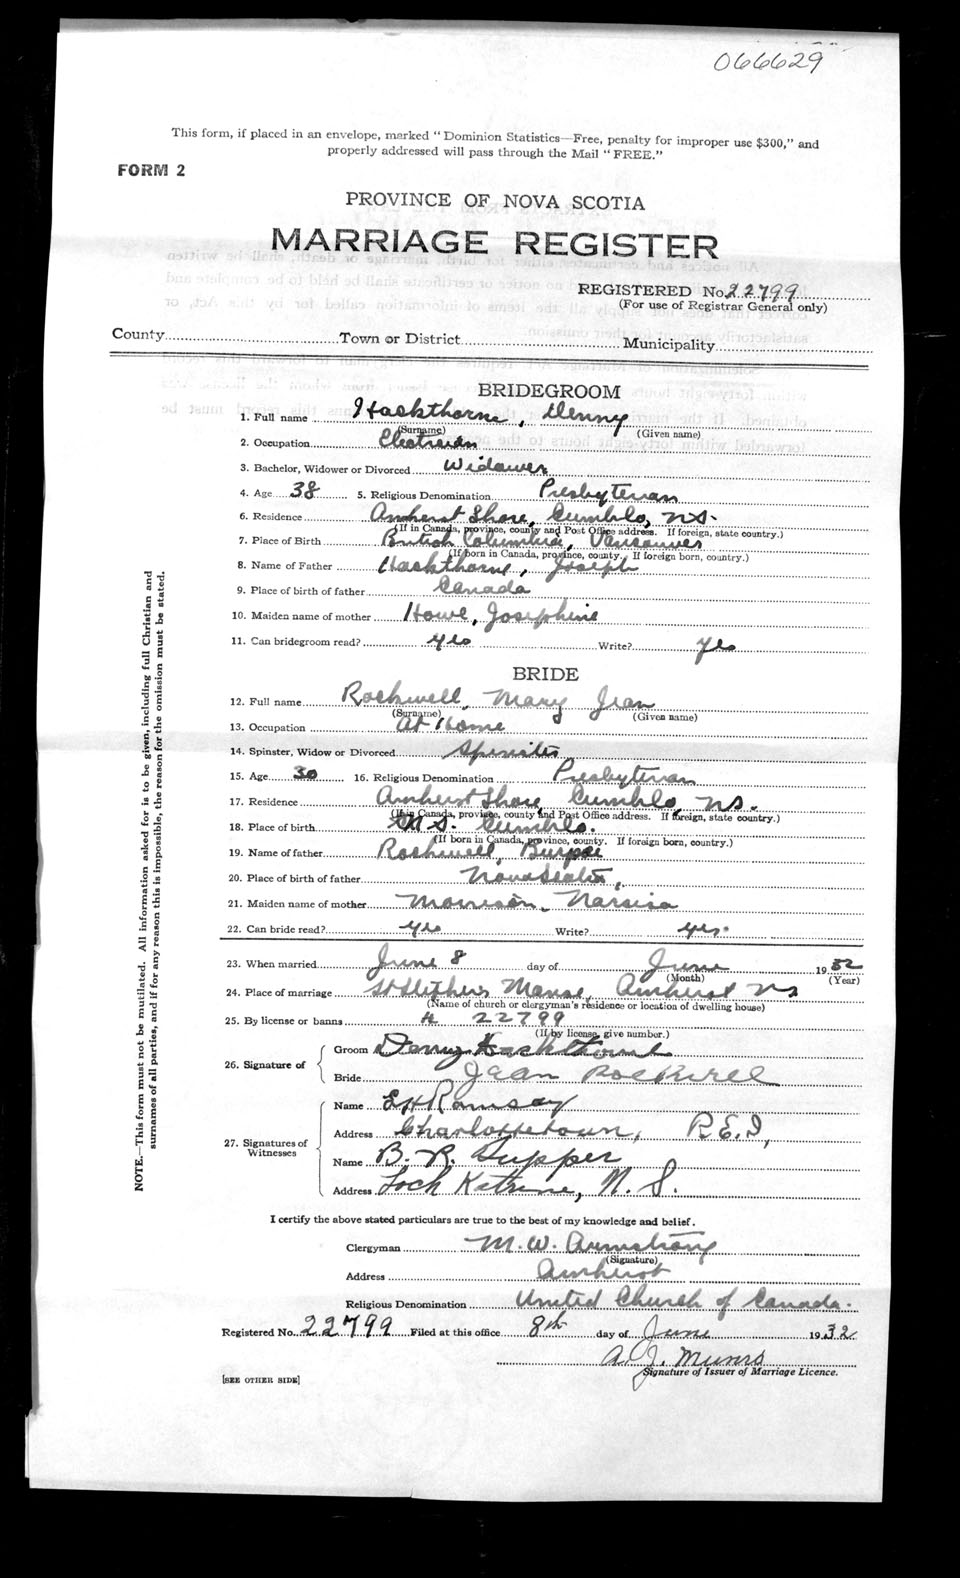 066629
This form, if placed in an envelope, marked "Dominion Statistics—Free, penalty for improper use $300," and
properly addressed will pass through the Mail "FREE."
FORM 2
PROVINCE OF NOVA SCOTIA
MARRIAGE REGISTER
REGISTERED No. 22799
(For use of Registrar General only)
County Town or District Municipality
BRIDEGROOM
1. Full name Hackthorne, Denny
(Surname) (Given name)
2. Occupation Electrician
3. Bachelor, Widower or Divorced Widower
4. Age 38 5. Religious Denomination Presbyterian
6. Residence Amherst Shore, Cumb'lo, N.S.
(If in Canada, province, county and Post Office address. If foreign, state country.)
7. Place of Birth British Columbia, Vancouver
(If born in Canada, province, county. If foreign born, country.)
8. Name of Father Hackthorne, Joseph
9. Place of birth of father Canada
10. Maiden name of mother Howe, Josephine
11. Can bridegroom read? yes Write? yes
BRIDE
12. Full name Rockwell, Mary Jean
(Surname) (Given name)
13. Occupation At Home
14. Spinster, Widow or Divorced Spinster
15. Age 30 16. Religious Denomination Presbyterian
17. Residence Amherst Shore, Cumblo, N.S.
(If in Canada, province, county and Post Office address. If foreign, state country.)
18. Place of birth N.S. Cumblo.
(If born in Canada, province, county. If foreign born, country.)
19. Name of father Rockwell, Burpee
20. Place of birth of father Nova Scotia,
21. Maiden name of mother Morrison, Narsisa
22. Can bride read? yes Write? yes.
23. When married June 8 day of June 1932
(Month) (Year)
24. Place of marriage St Stephens Manse, Amherst NS
(Name of church or clergyman's residence or location of dwelling house)
25. By license or banns 22799
(If by license, give number.)
26. Signature of Groom Denny Hackthorne
Bride Jean Rockwell
27. Signatures of Witnesses Name E H Ramsay
Address Charlottetown, P.E.I,
Name B. R. Tupper
Address Loch Katrine, N. S.
I certify the above stated particulars are true to the best of my knowledge and belief.
Clergyman M. W. Armstrong
(Signature)
Address Amherst
Religious Denomination United Church of Canada.
Registered No. 22799 Filed at this office 8th day of June 1932
A. J. Munro
Signature of Issuer of Marriage Licence.
[SEE OTHER SIDE]
NOTE.—This form must not be mutilated. All information asked for is to be given, including full Christian and
surnames of all parties, and if for any reason this is impossible, the reason for the omission must be stated.